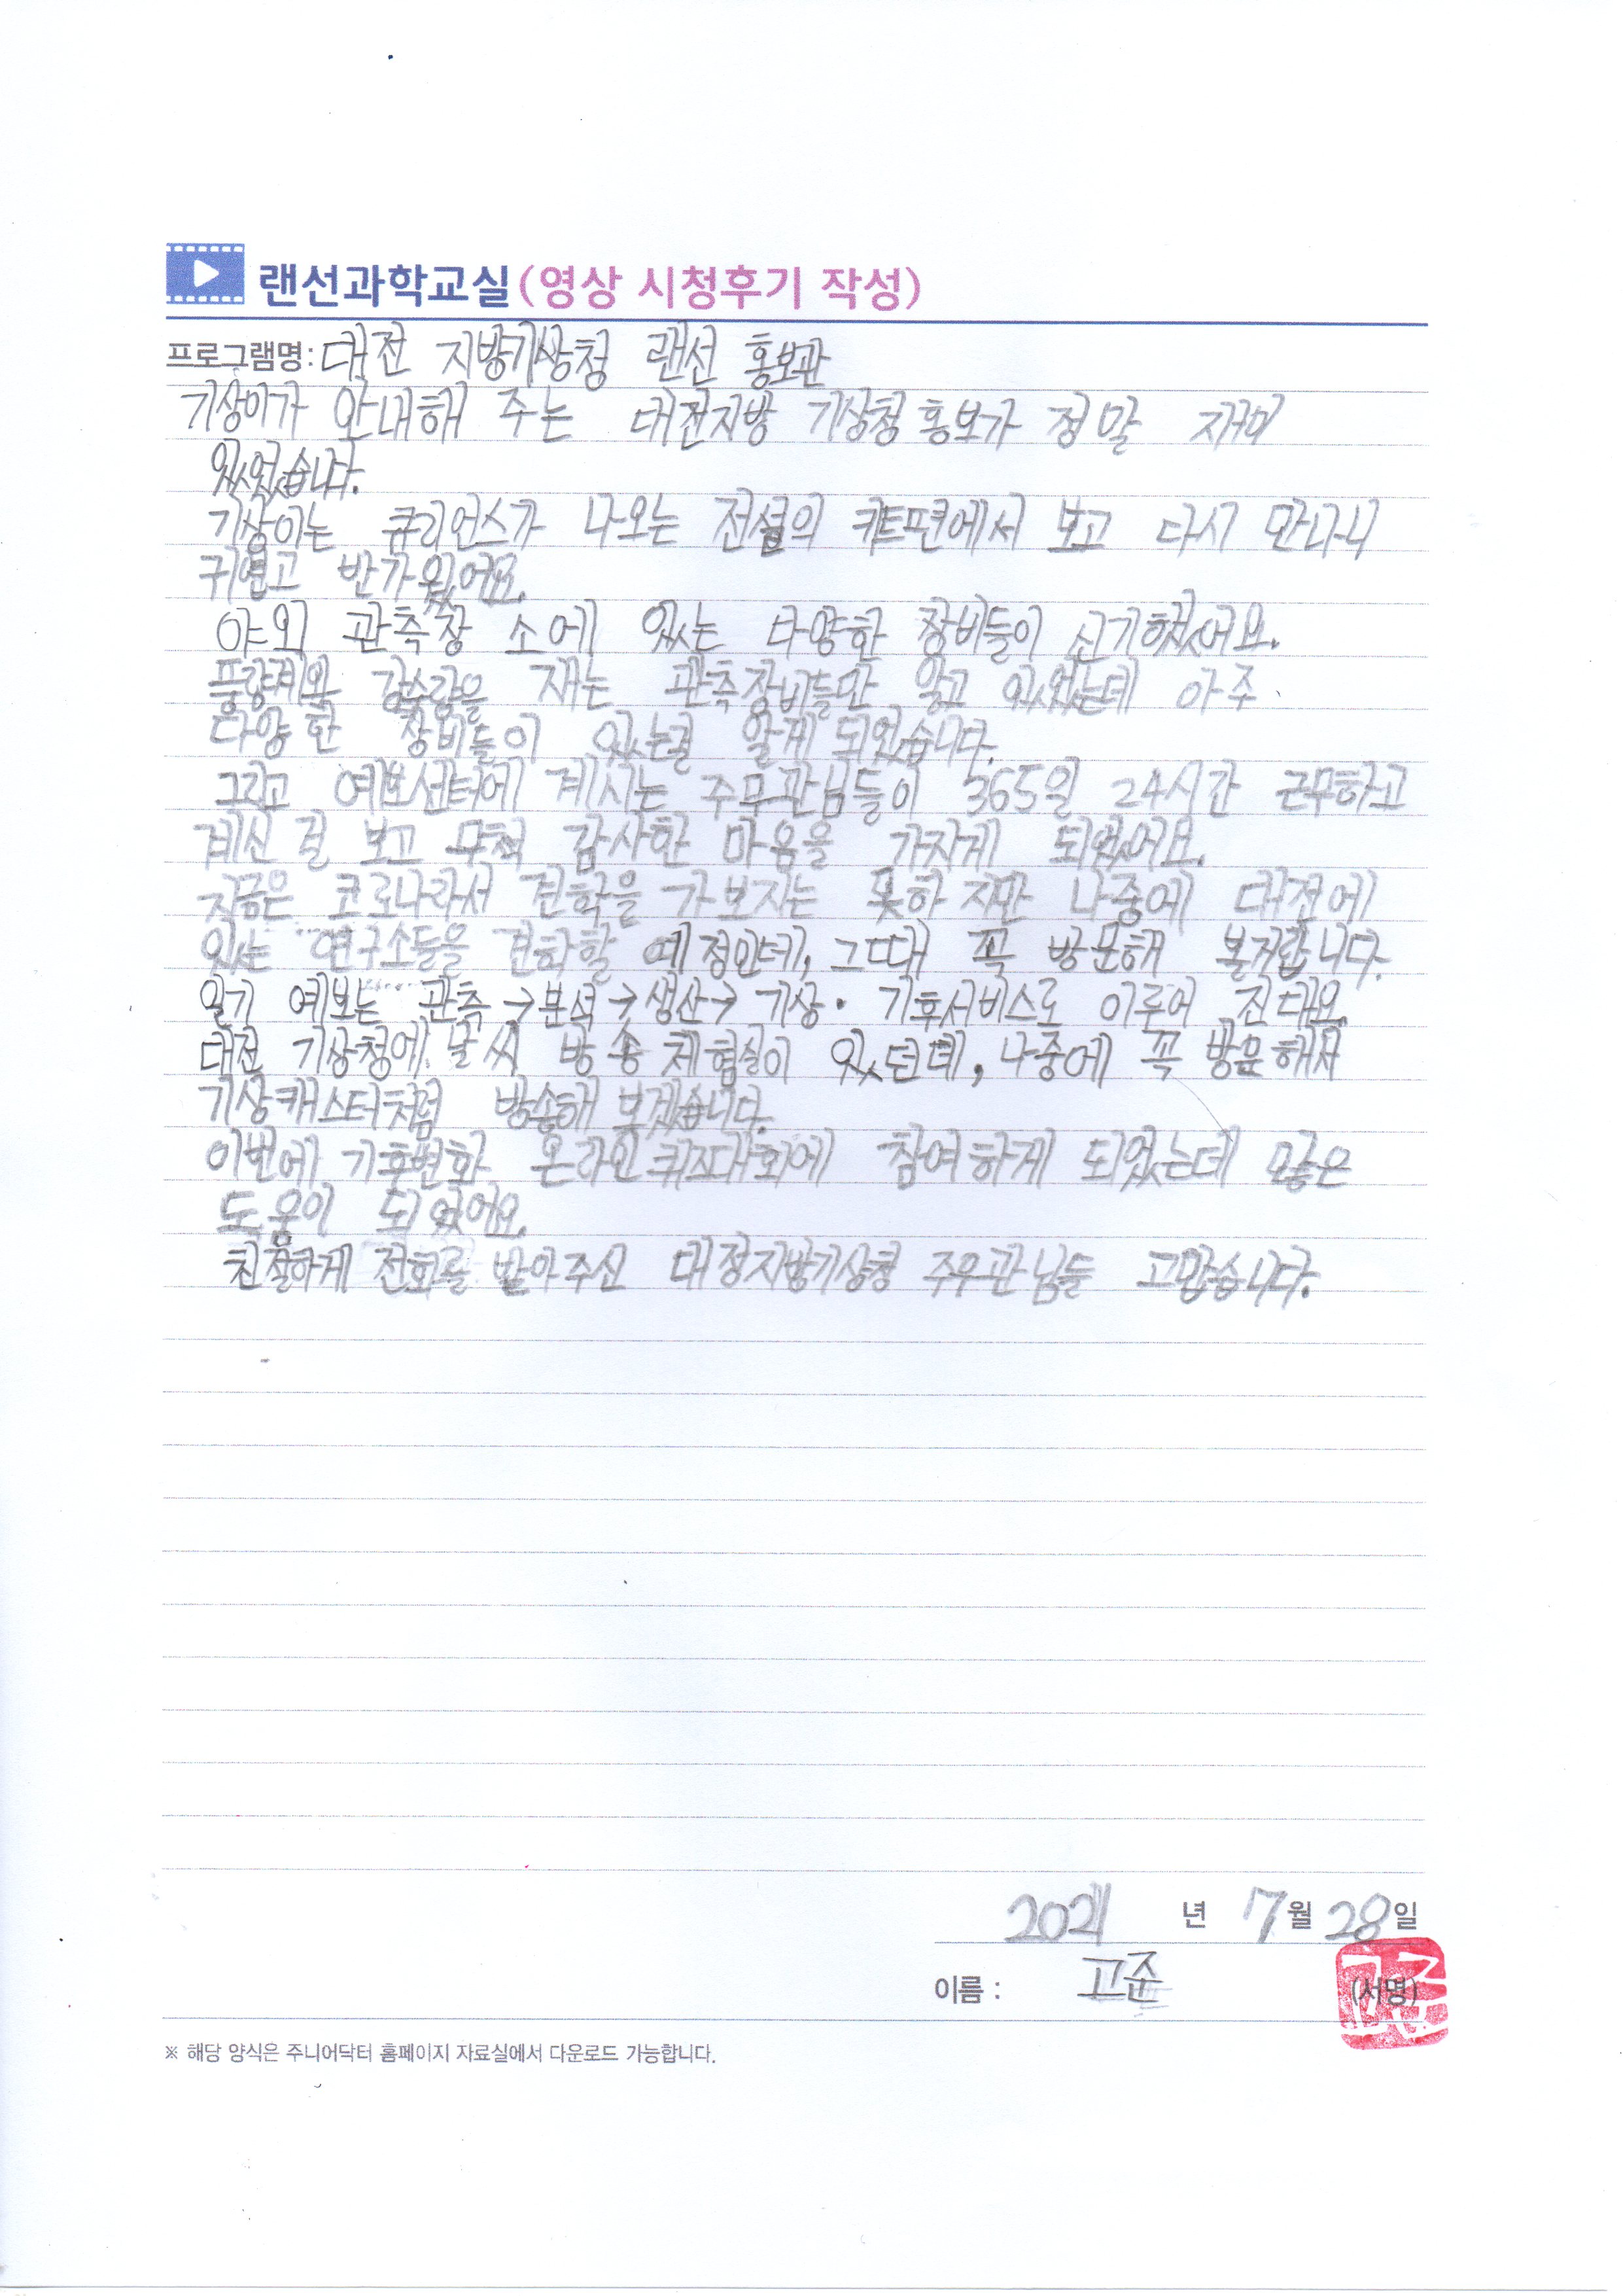 랜선과학교실(영상 시청후기 작성)
프로그램명: 대전 지방기상청 랜선 홍보관
기상이가 안내해 주는 대전지방 기상청 홍보가 정말 재미
있었습니다.
기상이는 큐리언스가 나오는 전설의 카트편에서 보고 다시 만나니
귀엽고 반가웠어요.
야외 관측장 소에 있는 다양한 장비들이 신기했어요.
풍향계와 강수량을 재는 관측장비들만 알고 있었는데 아주
다양한 장비들이 있는걸 알게 되었습니다.
그리고 예보센터에 계시는 주무관님들이 365일 24시간 근무하고
계신 걸 보고 무척 감사한 마음을 가지게 되었어요.
지금은 코로나라서 견학을 가보지는 못하지만 나중에 대전에
있는 연구소들을 견학할 예정인데, 그때 꼭 방문해 볼거랍니다.
일기 예보는 관측→분석→생산→기상·기후서비스로 이루어 진대요.
대전 기상청에 날씨 방송 체험실이 있던데, 나중에 꼭 방문해서
기상캐스터처럼 방송해 보겠습니다.
이번에 기후변화 온라인 퀴즈대회에 참여하게 되었는데 많은
도움이 되었어요.
친절하게 전화를 받아주신 대정지방기상청 주무관님들 고맙습니다.
2021 년 7월 28일
이름 : 고준 (서명)
※ 해당 양식은 주니어닥터 홈페이지 자료실에서 다운로드 가능합니다.